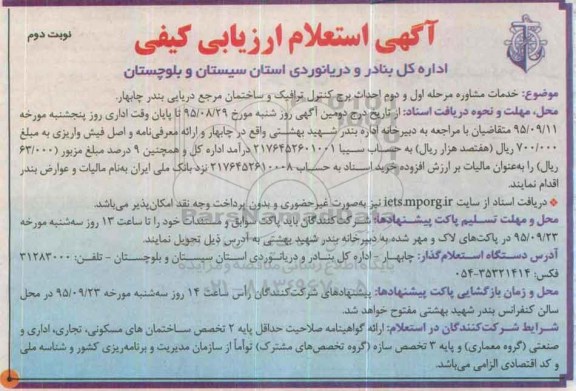 نوبت دوم
آگهی استعلام ارزیابی کیفی
اداره کل بنادر و دریانوردی استان سیستان و بلوچستان
موضوع: خدمات مشاوره مرحله اول و دوم احداث برج کنترل ترافیک و ساختمان مرجع دریایی بندر چابهار.
محل، مهلت و نحوه دریافت اسناد: از تاریخ درج دومین آگهی روز شنبه مورخ ۹۵/۰۸/۲۹ تا پایان وقت اداری روز پنجشنبه مورخه
۹۵/۰۹/۱۱ متقاضیان با مراجعه به دبیرخانه اداره بندر شهید بهشتی واقع در چابهار و ارائه معرفی‌نامه و اصل فیش واریزی به مبلغ
۷۰۰/۰۰۰ ریال (هفتصد هزار ریال) به حساب سیبا ۲۱۷۶۴۵۲۶۰۱۰۰۱ درآمد اداره کل و همچنین ۹ درصد مبلغ مزبور (۶۳/۰۰۰
ریال) را به‌عنوان مالیات بر ارزش افزوده خرید اسناد به حساب ۲۱۷۶۴۵۲۶۱۰۰۰۸ نزد بانک ملی ایران به‌نام مالیات و عوارض بندر
اقدام نمایند.
دریافت اسناد از سایت iets.mporg.ir نیز به‌صورت غیرحضوری و بدون پرداخت وجه نقد امکان‌پذیر می‌باشد.
محل و مهلت تسلیم پاکت پیشنهادها: شرکت‌کنندگان باید پاکت سوابق و مستندات خود را تا ساعت ۱۳ روز سه‌شنبه مورخه
۹۵/۰۹/۲۳ در پاکت‌های لاک و مهر شده به دبیرخانه بندر شهید بهشتی به آدرس ذیل تحویل نمایند.
آدرس دستگاه استعلام‌گذار: چابهار - اداره کل بنادر و دریانوردی استان سیستان و بلوچستان - تلفن: ۳۱۲۸۳۰۰۰
فکس: ۳۵۳۲۱۴۱۴-۰۵۴
محل و زمان بازگشایی پاکت پیشنهادها: پیشنهادهای شرکت‌کنندگان رأس ساعت ۱۴ روز سه‌شنبه مورخه ۹۵/۰۹/۲۳ در محل
سالن کنفرانس بندر شهید بهشتی مفتوح خواهد شد.
شرایط شرکت‌کنندگان در استعلام: ارائه گواهینامه صلاحیت حداقل پایه ۲ تخصص ساختمان های مسکونی، تجاری، اداری و
صنعتی (گروه معماری) و پایه ۳ تخصص سازه (گروه تخصص‌های مشترک) توأماً از سازمان مدیریت و برنامه‌ریزی کشور و شناسه ملی
و کد اقتصادی الزامی می‌باشد.